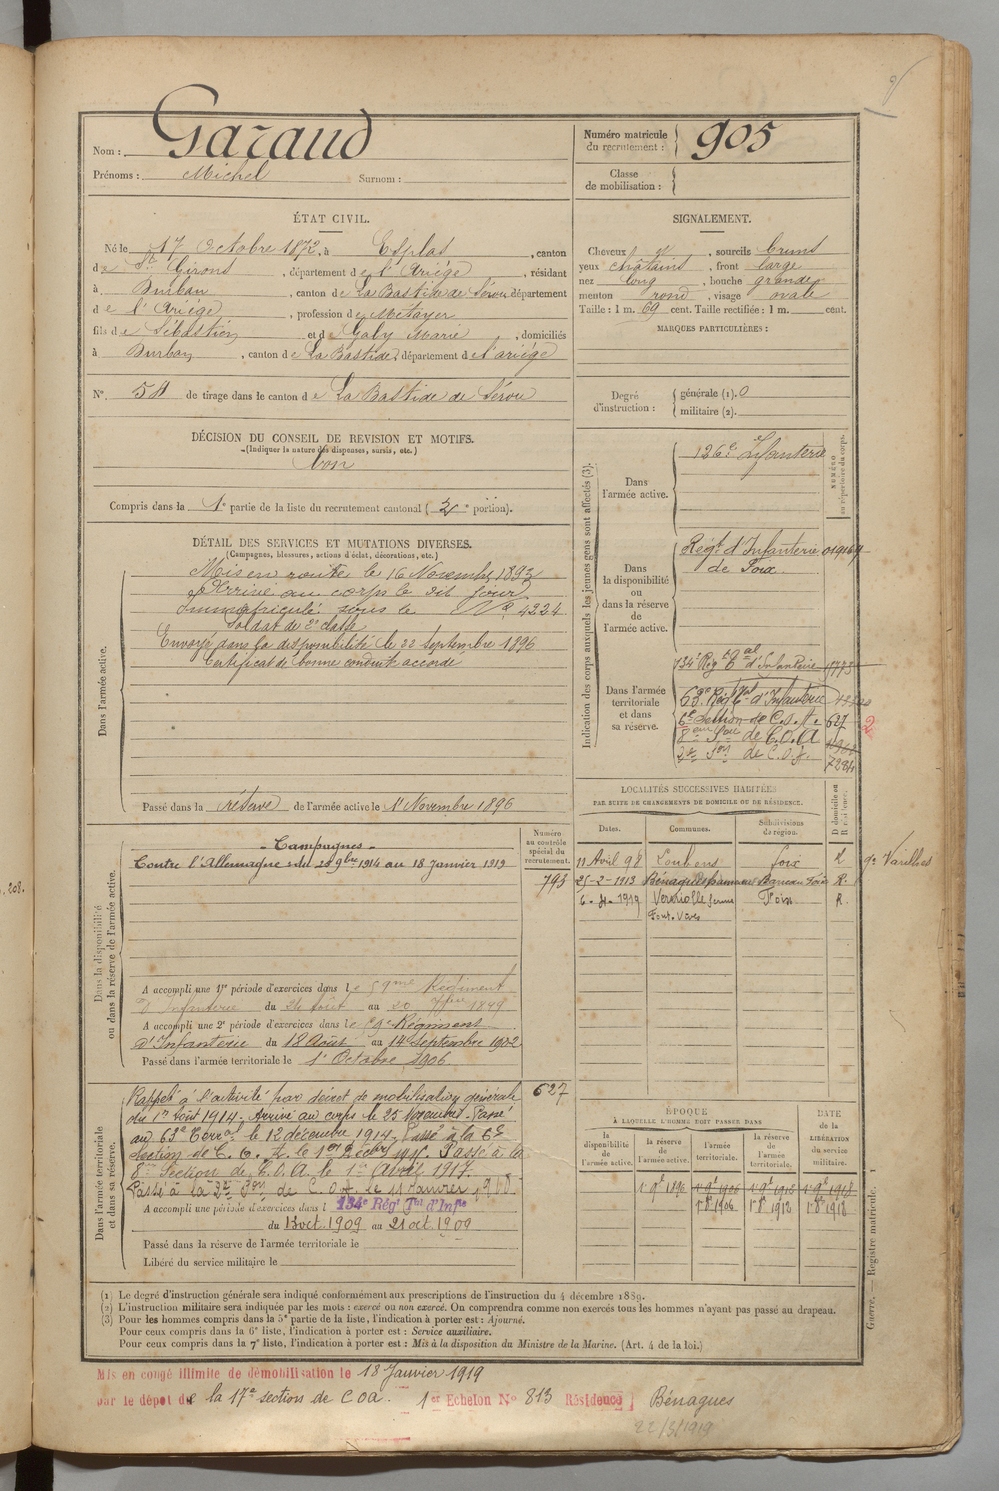 Nom : Garaud
Prénoms : Michel Surnom :
Numéro matricule du recrutement : 905
Classe de mobilisation :
ÉTAT CIVIL.
Né le 17 Octobre 1872, à Esplas, canton
de St Girons, département de l'Ariège, résidant
à Durban, canton de La Bastide de Sérou, département
de l'Ariège, profession de Métayer
fils de Sébastien et de Galy Marie, domiciliés
à Durban, canton de La Bastide, département de l'ariège
N° 58 de tirage dans le canton de La Bastide de Sérou
SIGNALEMENT.
Cheveux et, sourcils bruns
yeux châtains, front large
nez long, bouche grande
menton rond, visage ovale
Taille : 1 m. 69 cent. Taille rectifiée : 1 m. cent.
MARQUES PARTICULIÈRES :
Degré d'instruction : générale (1). 0
militaire (2).
DÉCISION DU CONSEIL DE REVISION ET MOTIFS.
(Indiquer la nature des dispenses, sursis, etc.)
bon
Compris dans la 1e partie de la liste du recrutement cantonal (2e portion).
DÉTAIL DES SERVICES ET MUTATIONS DIVERSES.
(Campagnes, blessures, actions d'éclat, décorations, etc.)
Dans l'armée active.
Mis en route le 16 Novembre 1893
Arrivé au corps le dit jour
Immatriculé sous le N° 4224
Soldat de 2e classe
Envoyé dans la disponibilité le 22 Septembre 1896
Certificat de bonne conduite accordé
Passé dans la réserve de l'armée active le 1er Novembre 1896
Indication des corps auxquels les jeunes gens sont affectés (3).
NUMÉRO au répertoire du corps.
Dans l'armée active.
126e Infanterie
Dans la disponibilité ou dans la réserve de l'armée active.
Régt d'Infanterie
de Foix
Dans l'armée territoriale et dans sa réserve.
134e Rég Tal d'Infanterie 1773
63e Rég Tal d'Infanterie
6e Section de C.O.A. 627
8eme Son de C.O.A
2e Son de C.O.A. 7284
2
LOCALITÉS SUCCESSIVES HABITÉES
PAR SUITE DE CHANGEMENTS DE DOMICILE OU DE RÉSIDENCE.
Dates. Communes. Subdivisions de région. D. domicile ou R. résidence.
11 Avril 98 Loubens foix R ge Varilhes
25-2-1913 Bénagues Foix R.
1919 Verniolle ferme Foix R.
Font-Vives
Dans la disponibilité ou dans la réserve de l'armée active.
Numéro au contrôle spécial du recrutement.
Campagnes
Contre l'Allemagne du 25 9bre 1914 au 18 Janvier 1919
793
A accompli une 1re période d'exercices dans le 59me Régiment
d'Infanterie du 24 Août au 20 7bre 1899
A accompli une 2e période d'exercices dans le 59e Régiment
d'Infanterie du 18 Août au 14 Septembre 1902
Passé dans l'armée territoriale le 1er Octobre 1906
Dans l'armée territoriale et dans sa réserve.
Rappelé à l'activité par décret de mobilisation générale 627
du 1er Août 1914. Arrivé au corps le 25 Novembre. Passé
au 63e Terral le 12 décembre 1914. Passé à la 6e
Section de C.O.A. le 1er Décbre 1915. Passé à la
8e Section de C.O.A. le 1er Avril 1917.
Passé à la 2e Son de C.O.A le 11 Janvier 1918
A accompli une période d'exercices dans l 134e Rég Tal d'Infie
du 13 oct. 1909 au 21 oct. 1909
Passé dans la réserve de l'armée territoriale le
Libéré du service militaire le
ÉPOQUE
À LAQUELLE L'HOMME DOIT PASSER DANS
la disponibilité de l'armée active. la réserve de l'armée active. l'armée territoriale. la réserve de l'armée territoriale.
DATE de la LIBÉRATION du service militaire.
1er 9e 1896 1er 9e 1906 1er 9e 1912 1er 9e 1918
1er 8e 1906 1er 8e 1912 1er 8e 1918
(1) Le degré d'instruction générale sera indiqué conformément aux prescriptions de l'instruction du 4 décembre 1889.
(2) L'instruction militaire sera indiquée par les mots : exercé ou non exercé. On comprendra comme non exercés tous les hommes n'ayant pas passé au drapeau.
(3) Pour les hommes compris dans la 5e partie de la liste, l'indication à porter est : Ajourné.
Pour ceux compris dans la 6e liste, l'indication à porter est : Service auxiliaire.
Pour ceux compris dans la 7e liste, l'indication à porter est : Mis à la disposition du Ministre de la Marine. (Art. 4 de la loi.)
Guerre. — Registre matricule. 1
Mis en congé illimité de démobilisation le 18 Janvier 1919
par le dépôt de la 17e section de COA. 1er Echelon N° 813 Résidence Bénagues
22/3/1919
208.